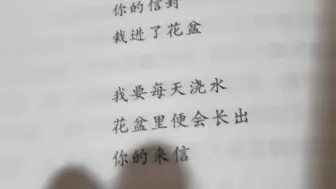 你的信封
栽进了花盆
我要每天浇水
花盆里便会长出
你的来信